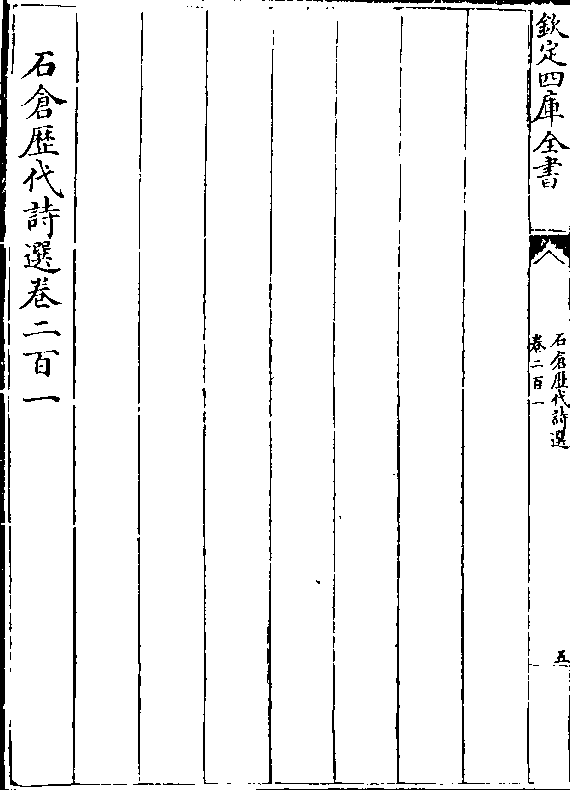 欽定四庫全書
石倉歷代詩選
卷二百一
五
石倉歷代詩選卷二百一